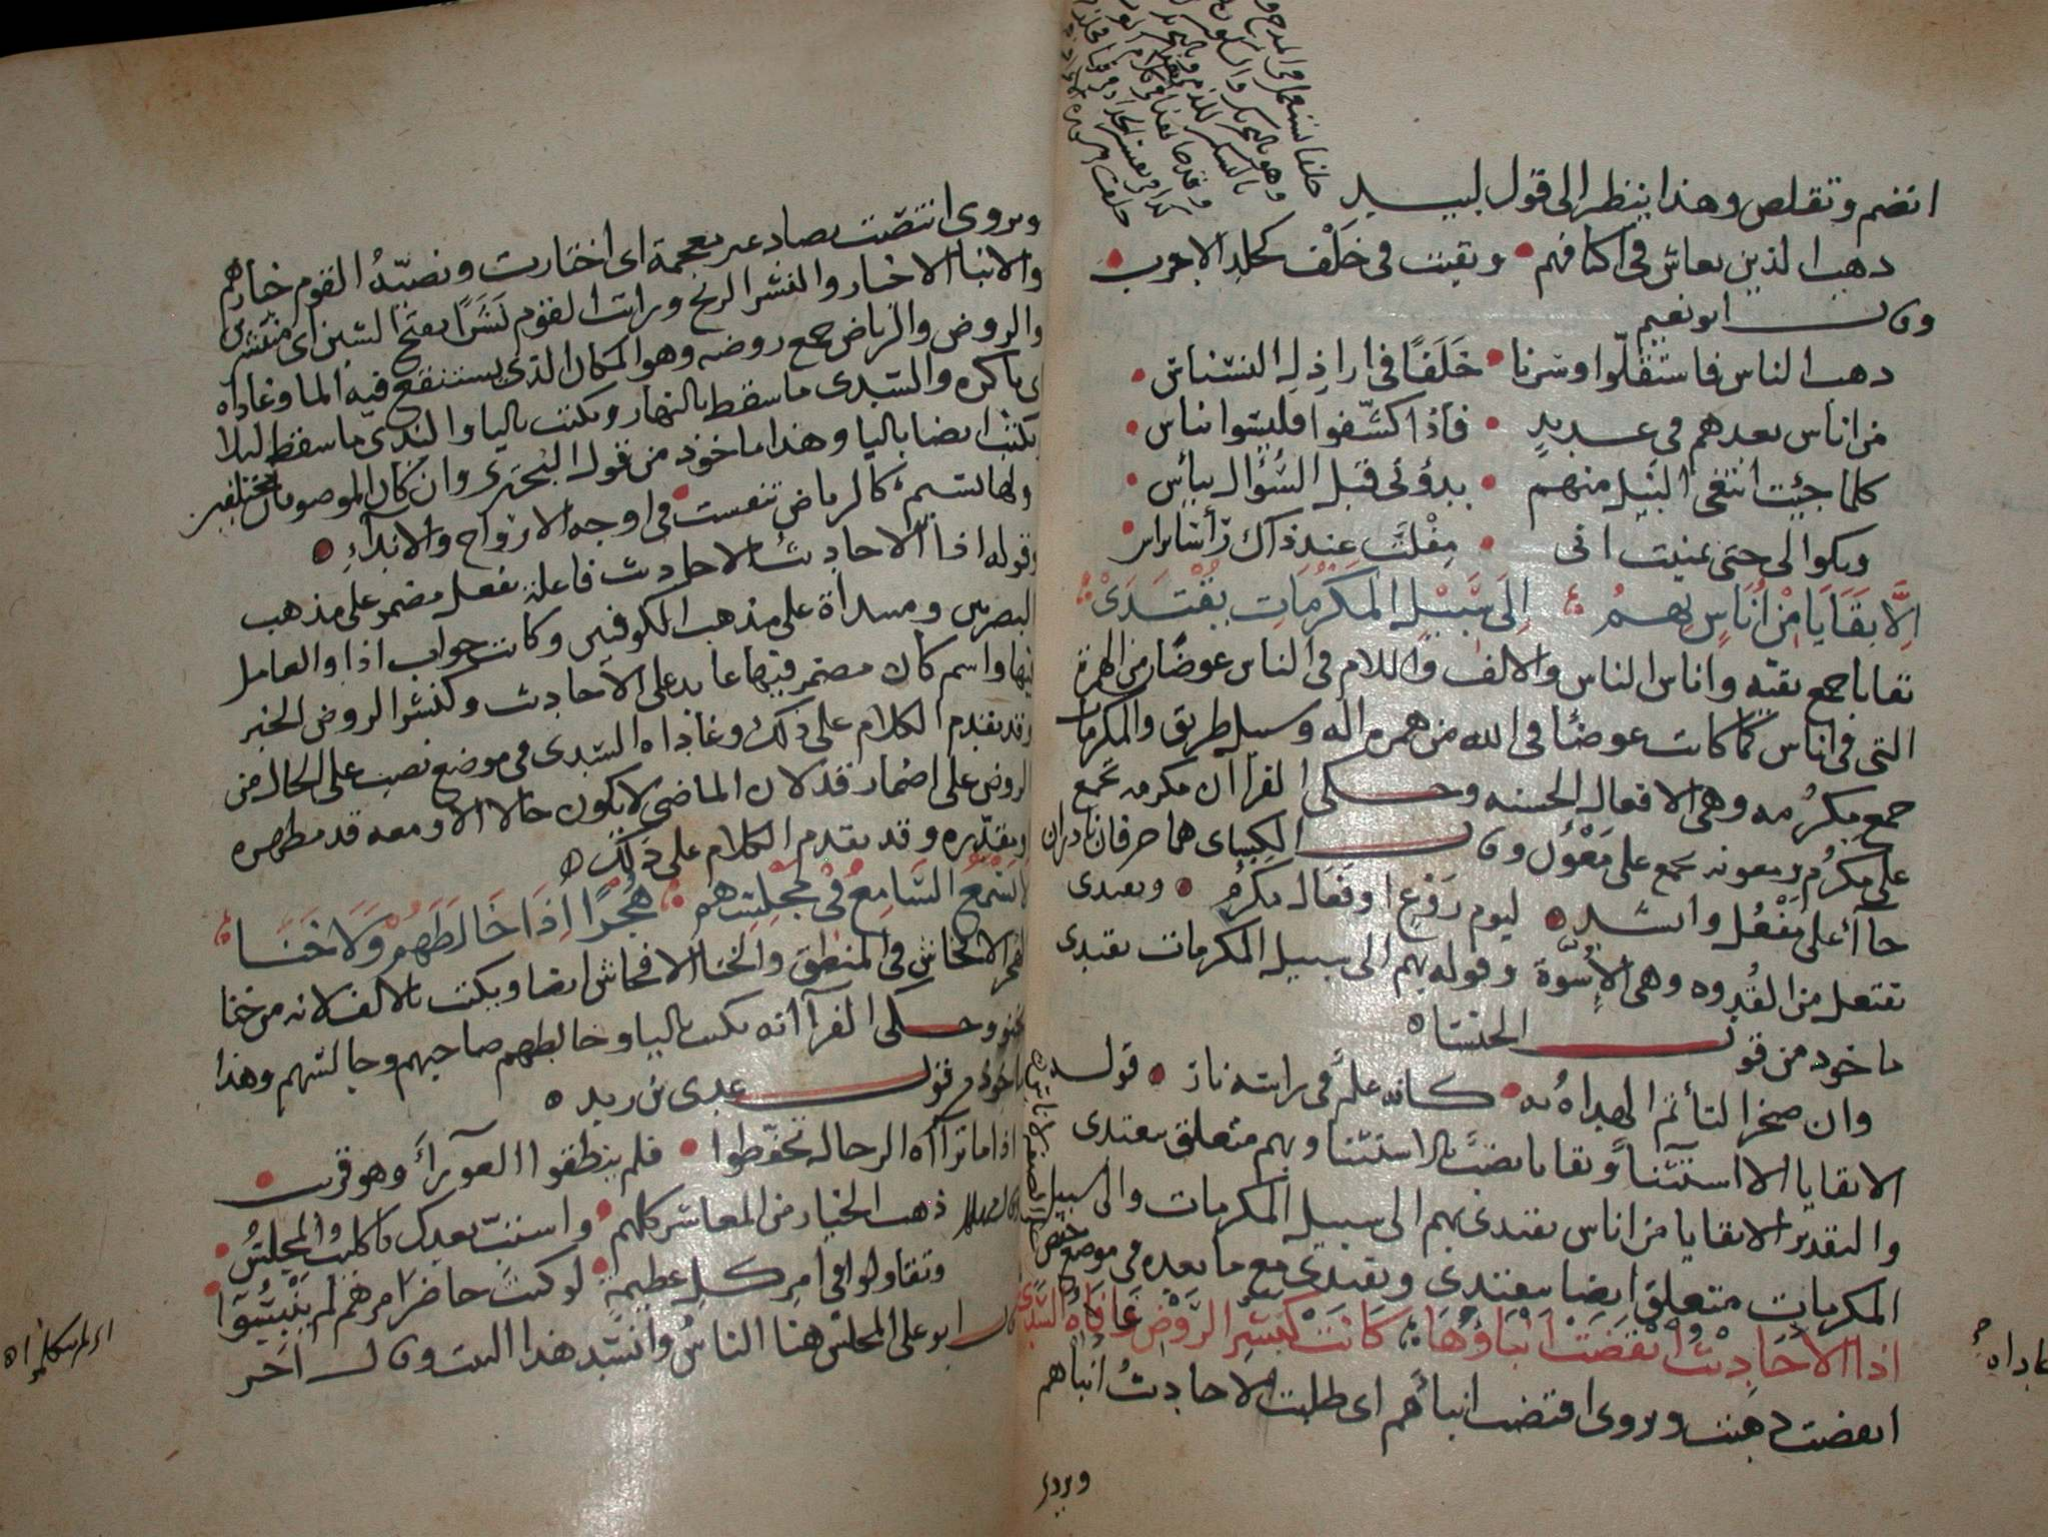 انضم وتقلص وهذا ينظر الى قول لبيد
ذهب الذين يعاش في اكنافهم وبقيت في خلف كجلد الاجرب
وقال ابو نعيم
ذهب الناس فاستقلوا وصرنا خَلَفًا في اراذِلِ النسناس
من اناس نعدهم في عديدٍ فاذا كشّفوا فليسوا بناس
كلما جئت ابتغى النيل منهم بدؤني قبل السُّؤال بيأس
وبكوا لي حتى تمنيت اني مفلت عند ذاك رأسا براس
اِلَّا بَقَايَا مِنْ اُنَاسٍ بِهِمُ اِلَى سَبِيْلِ المَكْرُمَاتِ يُقْتَدَىْ
بقايا جمع بقيّه واناس الناس والالف واللام في الناس عوضًا من الهمزة
التي في اناس كما كانت عوضًا في الله من همزة اله وسبيل طريق والمكرمات
جمع مكرُمه وهي الافعال الحسنه وحكى الفرا ان مكرمه تجمع
على مكرُم ومعونه تجمع على مَعْوُن وقال الكسائي هما حرفان نادران
جاآ على مَفْعُل وانشد ليوم رَوْعٍ او فَعَالِ مكرُم ويقتدى
يفتعل من القُدوه وهي الاُسْوَة وقوله بهم الى سبيل المكرمات يقتدى
ماخوذ من قول الخنساء
وان صخرا لتأتم الهداةُ به كانه علمٌ في راسه نار قوله
الا بقايا الا استثناءً وبقايا نصبٌ بالاستثنا وبهم متعلق بيقتدى
والتقدير الا بقايا من اناس يقتدى بهم الى سبيل المكرمات والى سبيل
المكرمات متعلق ايضا بيقتدى ويقتدى مع ما بعده في موضع خفض
اذا الاَحَادِيْثُ انْقَضَتْ اَنْبَاؤُهَا كَانَتْ كَنَشْرِ الرَّوْضِ غَادَاه السَّدَى
انقضت ذهبت ويروى اقتضت انباؤهم اى طلبت الاحاديثُ انباهم
ويروى
ويروى انتصّت بصاد غير معجمة اى اختارت ونصيّةُ القوم خيارهم
والانبا الاخبار والنشر الريح ورايت القوم نَشَرًا بفتح الشين اى منتشرين
والروض والرياض جمع روضه وهو المكان الذى يستنقع فيه الما وغاداه
اى باكره والسدى ما سقط بالنهار ويكتب باليا والندى ما سقط ليلا
يكتب ايضا باليا وهذا ماخوذ من قول البحترى وان كان الموصوفان مختلفين
ولها نسيم كالرياض تنفست في اوجه الارواح والانداءِ
وقوله اذا الاحاديث الاحاديث فاعلة بفعل مضمر على مذهب
البصريين ومبتدأة على مذهب الكوفيين وكانت جواب اذا والعامل
فيها واسم كان مضمر فيها عايد على الاحاديث وكنشر الروض الخبر
وقد تقدم الكلام على ذلك وغاداه السدى في موضع نصب على الحال من
الروض على اضمار قد لان الماضى لا يكون حالا الا ومعه قد مظهره
او مقدّره وقد تقدم الكلام على ذلك
لا يَسْمَعُ السَّامِعُ في مَجْلِسِهم هُجْرًا اِذَا خَالَطَهُمْ وَلَا خَنَا
الهجر الافحاش في المنطق والخنا الافحاش ايضا ويكتب بالالف لانه من خنا
يخنو وحكى الفرآ انه يكتب باليا وخالطهم صاحبهم وجالسهم وهذا
ماخوذ من قول عدى بن زيد
اذا ما ترآاه الرجال تحفّظوا فلم ينطقوا العوراءَ وهو قريب
ذهب الخيار من المعاشر كلهم واستبّ بعدك يا كليب المجلسُ
وتقاولوا في امرِ كل عظيمةٍ لو كنتَ حاضرَ امرهم لم يَنْبِسُوا
قال ابو على المجلس هنا الناسُ وانشد هذا البيت وقال اخر